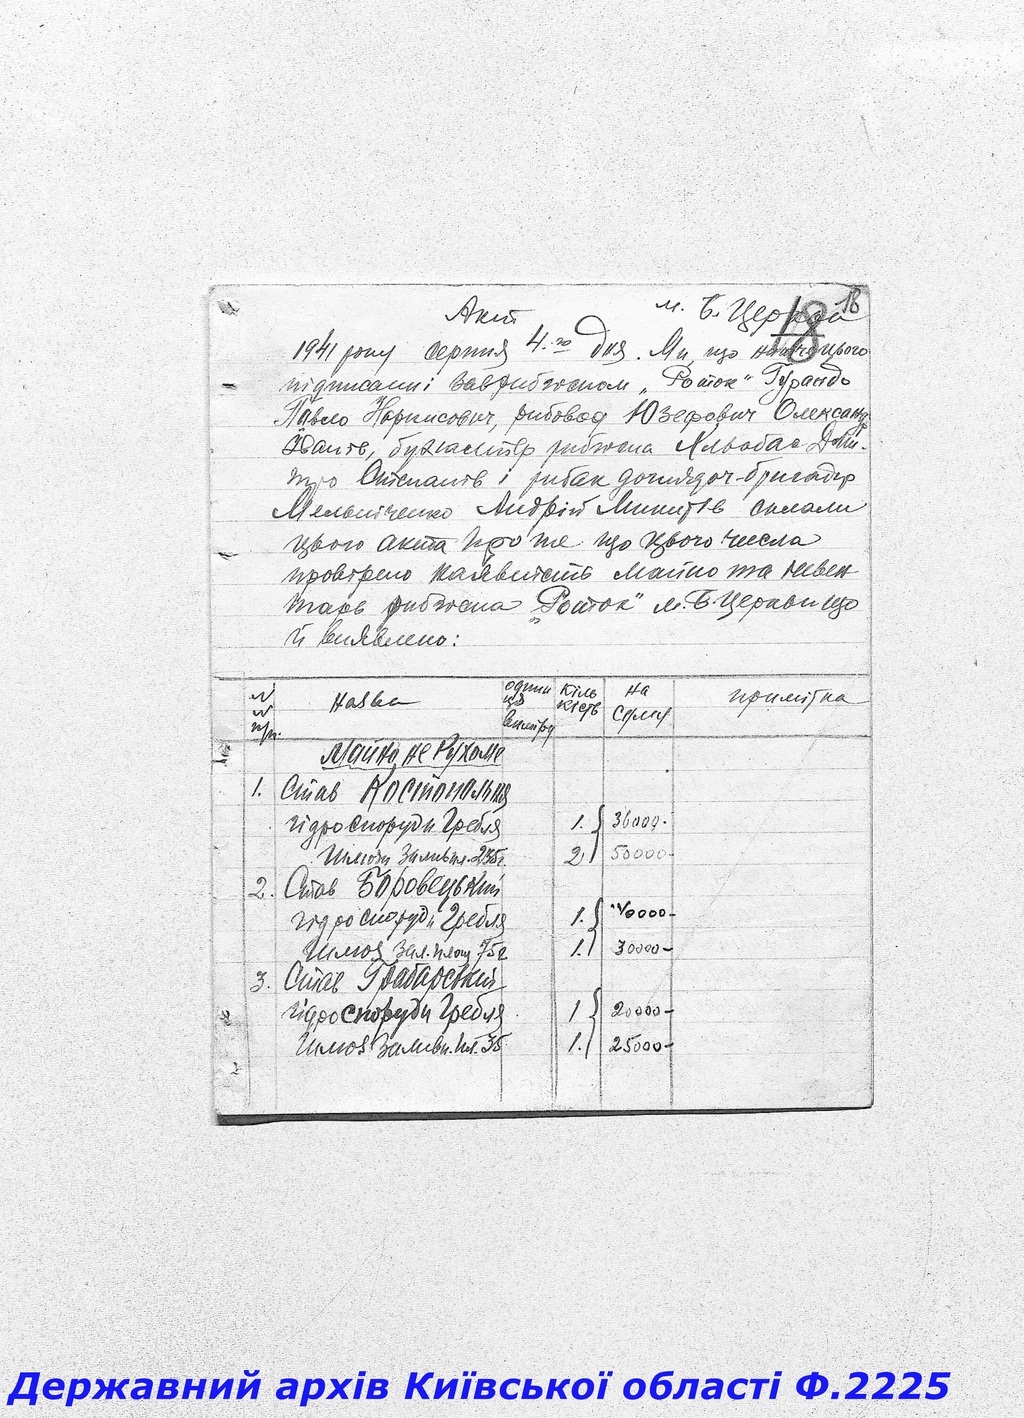 Акт м. Б. Церква 18
18
1941 року серпня 4-го Дня. Ми, що нижче цього
підписани і Завриб'юзном „Росток" Гурандо
Павло, рибовод Юзефович Олександр
бухгалтер Дми-
тро Степанів і рибак доглядач-бригадір
Мельніченко Андрій Микитів склали
цього акта про те що цього числа
провірено наявність майно та инвен
тарь „Росток" м. Б. Церкви що
й виявлено:
№ № п/п. Назва одини ця виміру Кіль кість На суму примітка
Майно не Рухоме
1. Став
гідроспоруди Гребля 1. 36000-
Шлюзи 2. 50000-
2. Став Боровецький
гідроспоруди Гребля 1. 40000-
Шлюз Зал. площ 75 г 1. 30000-
3. Став Грабарський
гідроспоруди Гребля 1 20000-
Шлюз Заливн. пл. 35 1. 25000-
Державний архів Київської області Ф.2225